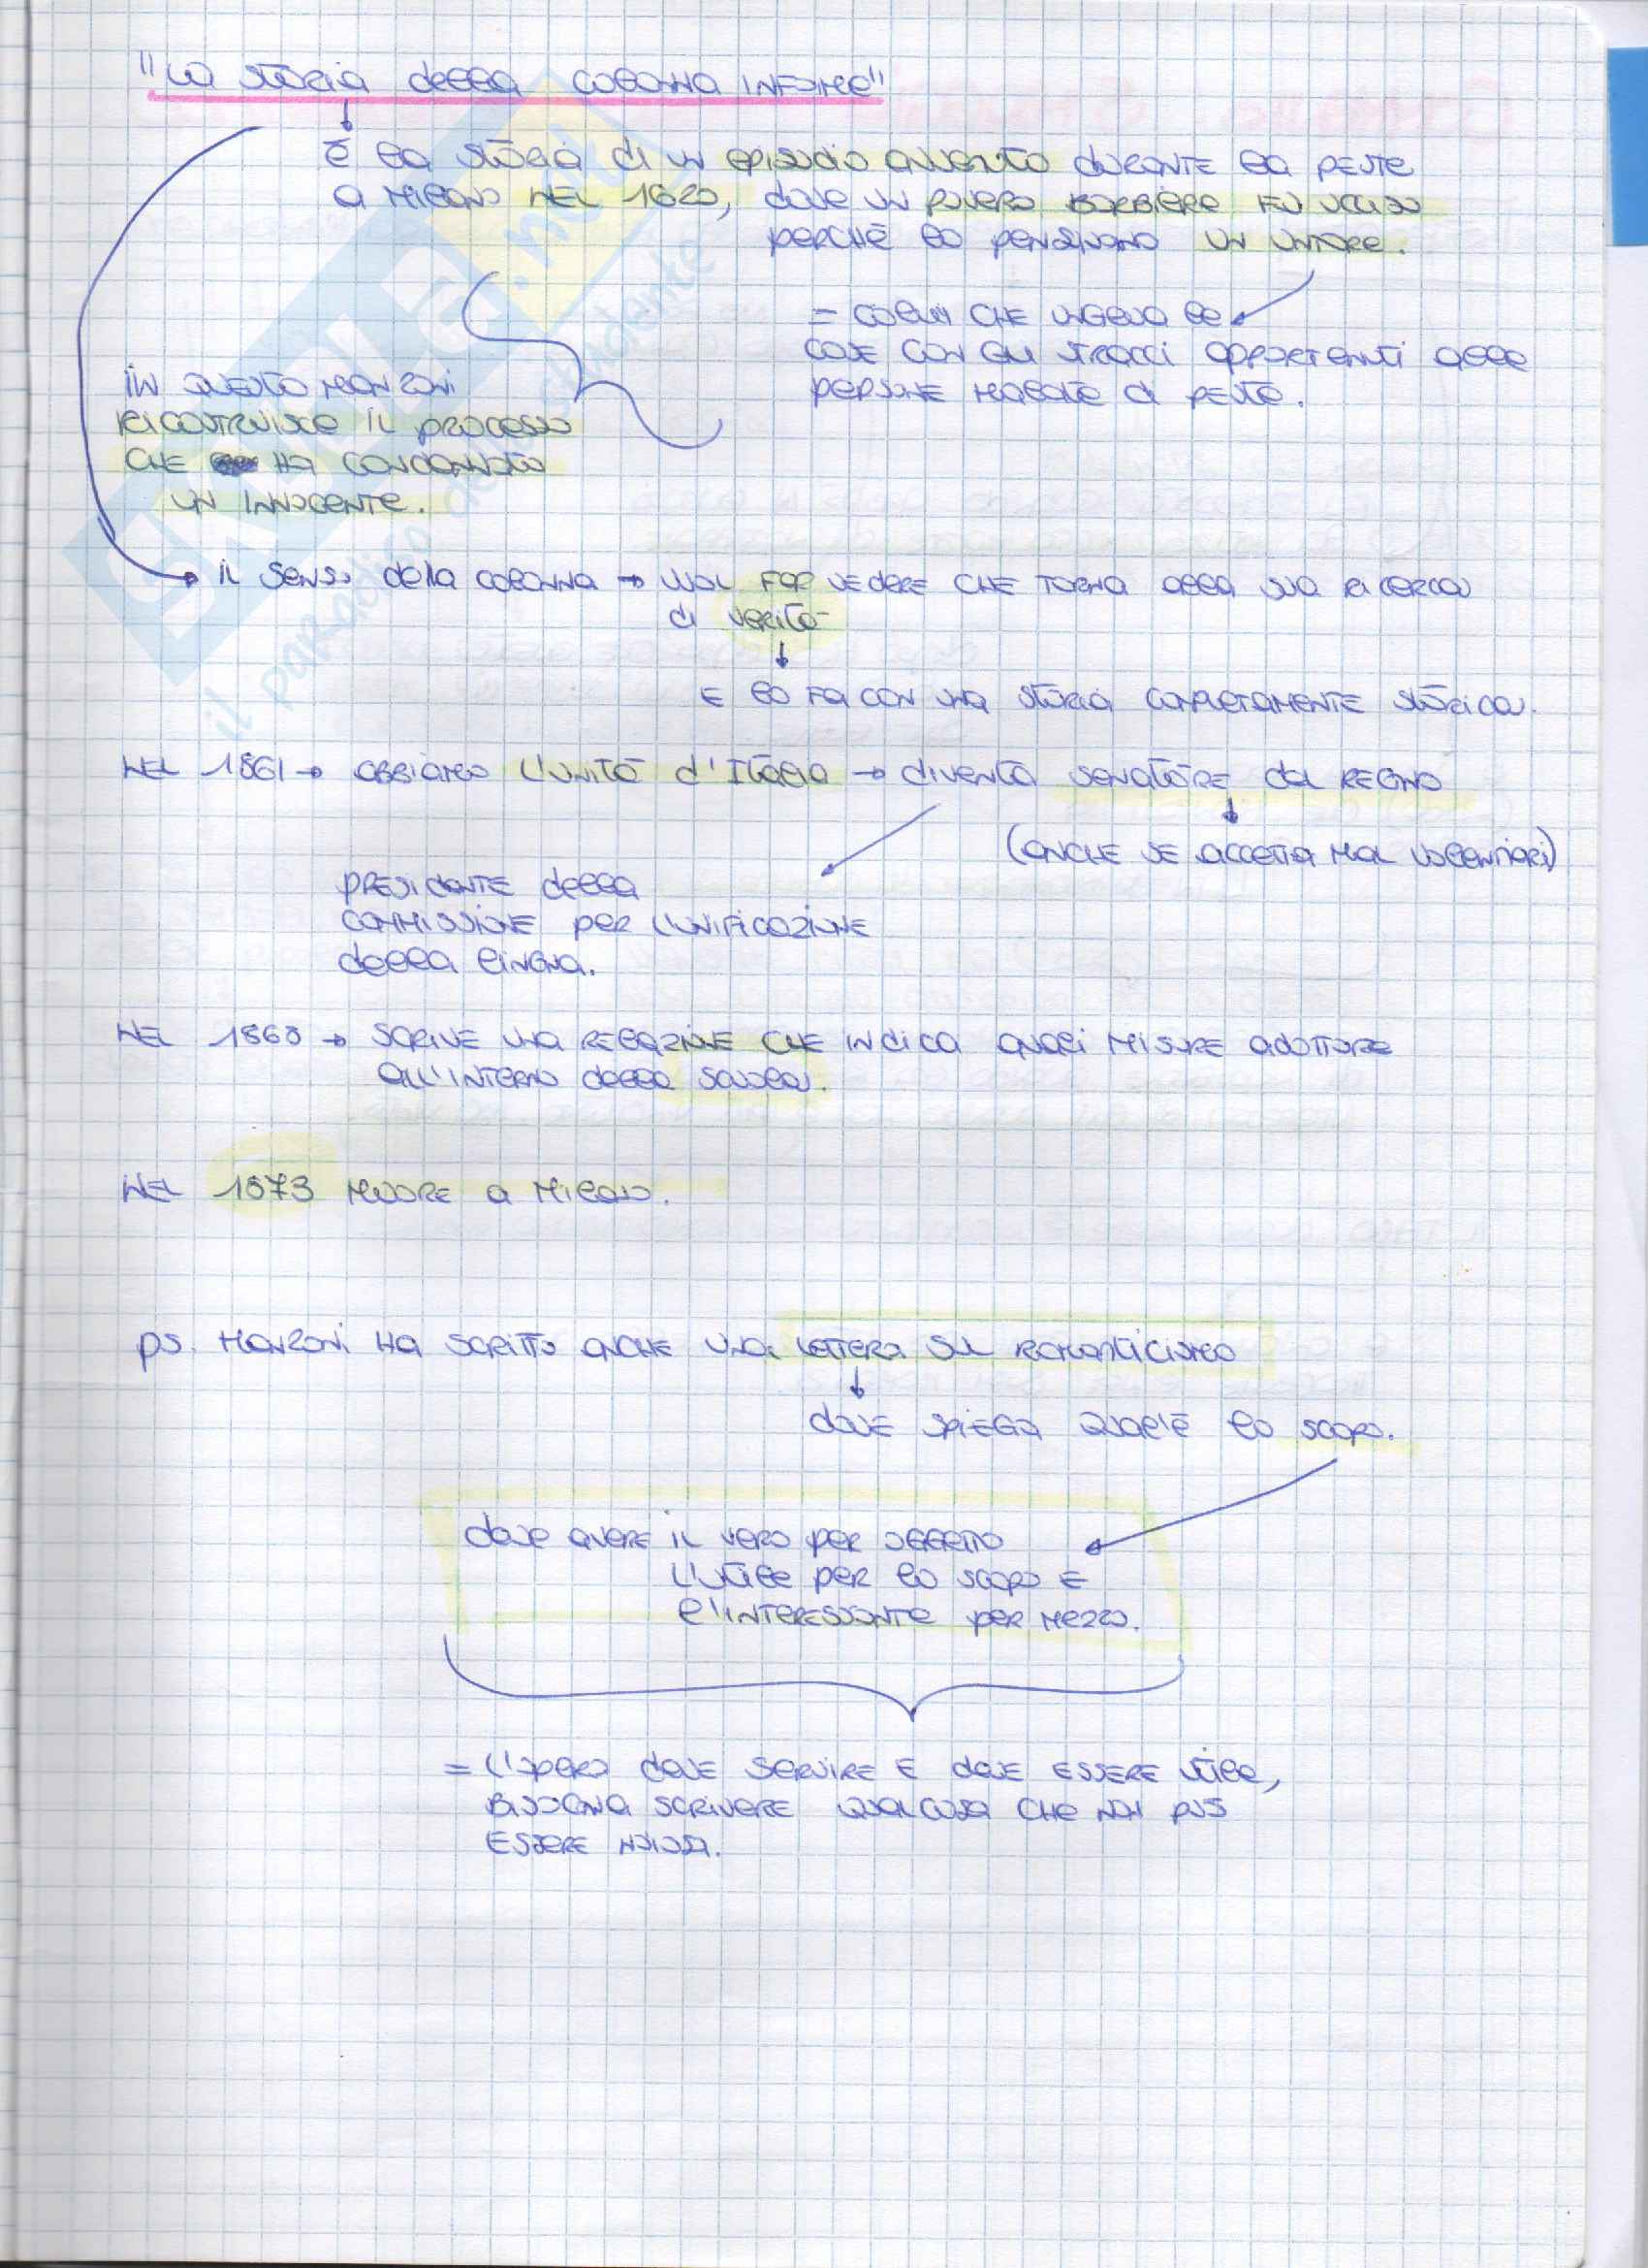 "La storia della colonna infame"
è la storia di un episodio avvenuto durante la peste
a Milano nel 1620, dove un povero barbiere fu ucciso
perchè lo pensavano un untore.
= colui che ungeva le
cose con gli stracci appartenuti alle
persone malate di peste.
in questo Manzoni
ricostruisce il processo
che ha condannato
un innocente.
il senso della colonna → vuol far vedere che torna alla sua ricerca
di verità
e lo fa con una storia completamente storica.
Nel 1861 → abbiamo l'unità d'Italia → diventa senatore del regno
(anche se accetta mal volentieri)
presidente della
commissione per l'unificazione
della lingua.
Nel 1868 → scrive una relazione che indica quali misure adottare
all'interno della scuola.
Nel 1873 muore a Milano.
ps. Manzoni ha scritto anche una lettera sul romanticismo
dove spiega qual'è lo scopo.
deve avere il vero per oggetto
l'utile per lo scopo e
l'interessante per mezzo.
= l'opera deve servire e deve essere utile,
bisogna scrivere qualcosa che non può
essere noiosa.
SKUOLA.net
il paradiso dello studente